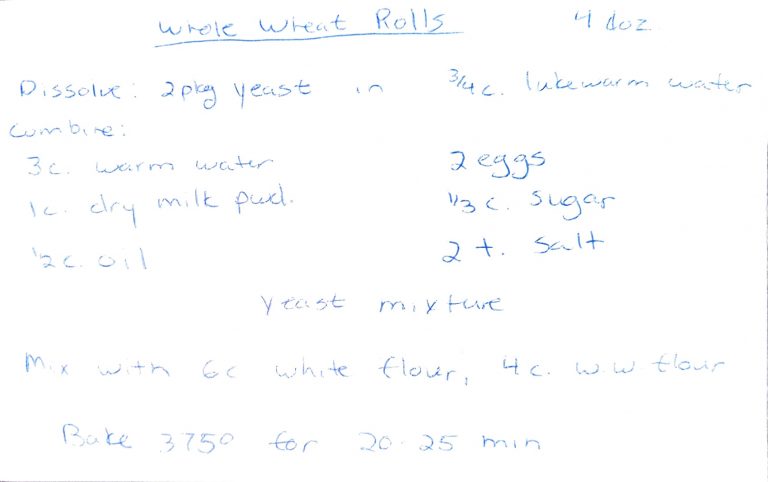 Whole Wheat Rolls 4 doz
Dissolve: 2 pkg yeast in 3/4 c. lukewarm water
Combine:
3 c. warm water 2 eggs
1 c. dry milk pwd. 1/3 c. sugar
1/2 c. oil 2 t. salt
yeast mixture
Mix with 6c white flour, 4 c. w.w. flour
Bake 375° for 20-25 min